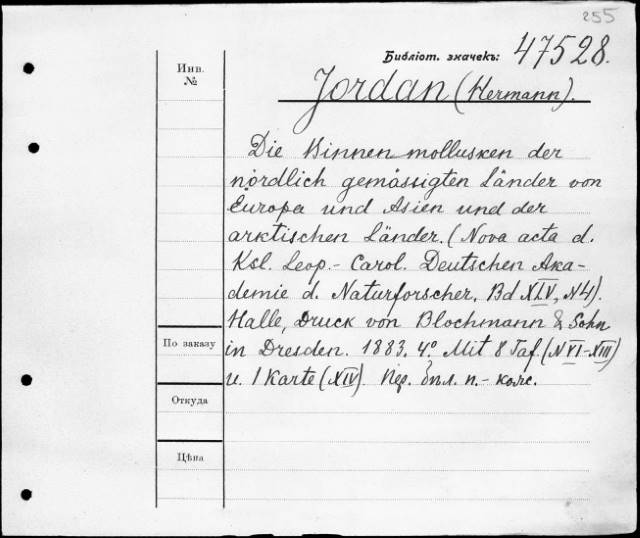 255
Библіот. значекъ: 47528.
Инв.
№
Jordan (Hermann).
Die Binnenmollusken der
nördlich gemässigten Länder von
Europa und Asien und der
arktischen Länder. (Nova acta d.
Ksl. Leop.- Carol. Deutschen Aka-
demie d. Naturforscher, Bd XLV, N4).
Halle, Druck von Blochmann & Sohn
in Dresden. 1883. 4º. Mit 8 Taf. (N VI-XIII)
u. 1 Karte (XIV). Пер. п.- кож.
По заказу
Откуда
Цѣна